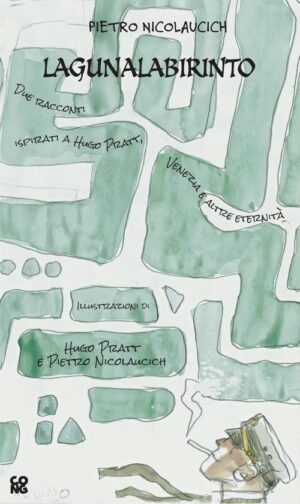 PIETRO NICOLAUCICH
LAGUNALABIRINTO
DUE RACCONTI
ISPIRATI A HUGO PRATT,
VENEZIA E ALTRE ETERNITÀ
ILLUSTRAZIONI DI
HUGO PRATT
E PIETRO NICOLAUCICH
CO
NG